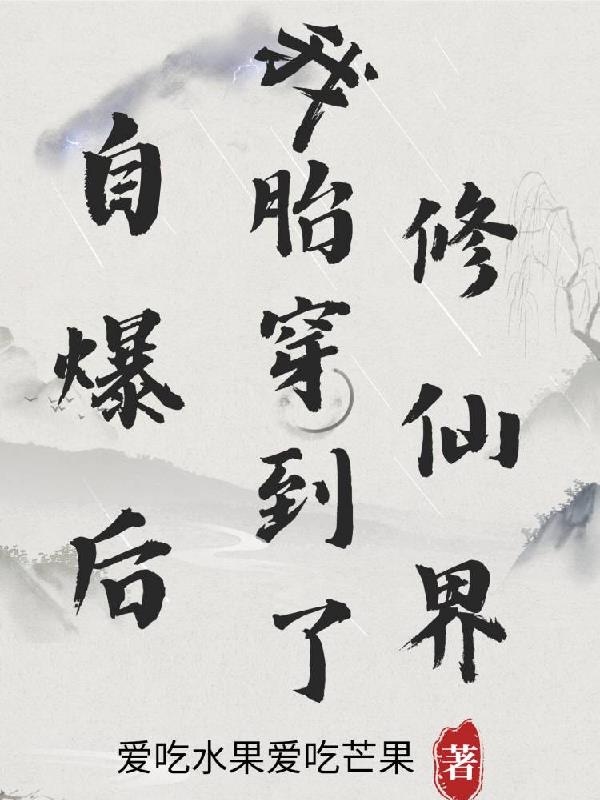 自爆后
我胎穿到了
修仙界
爱吃水果爱吃芒果 著